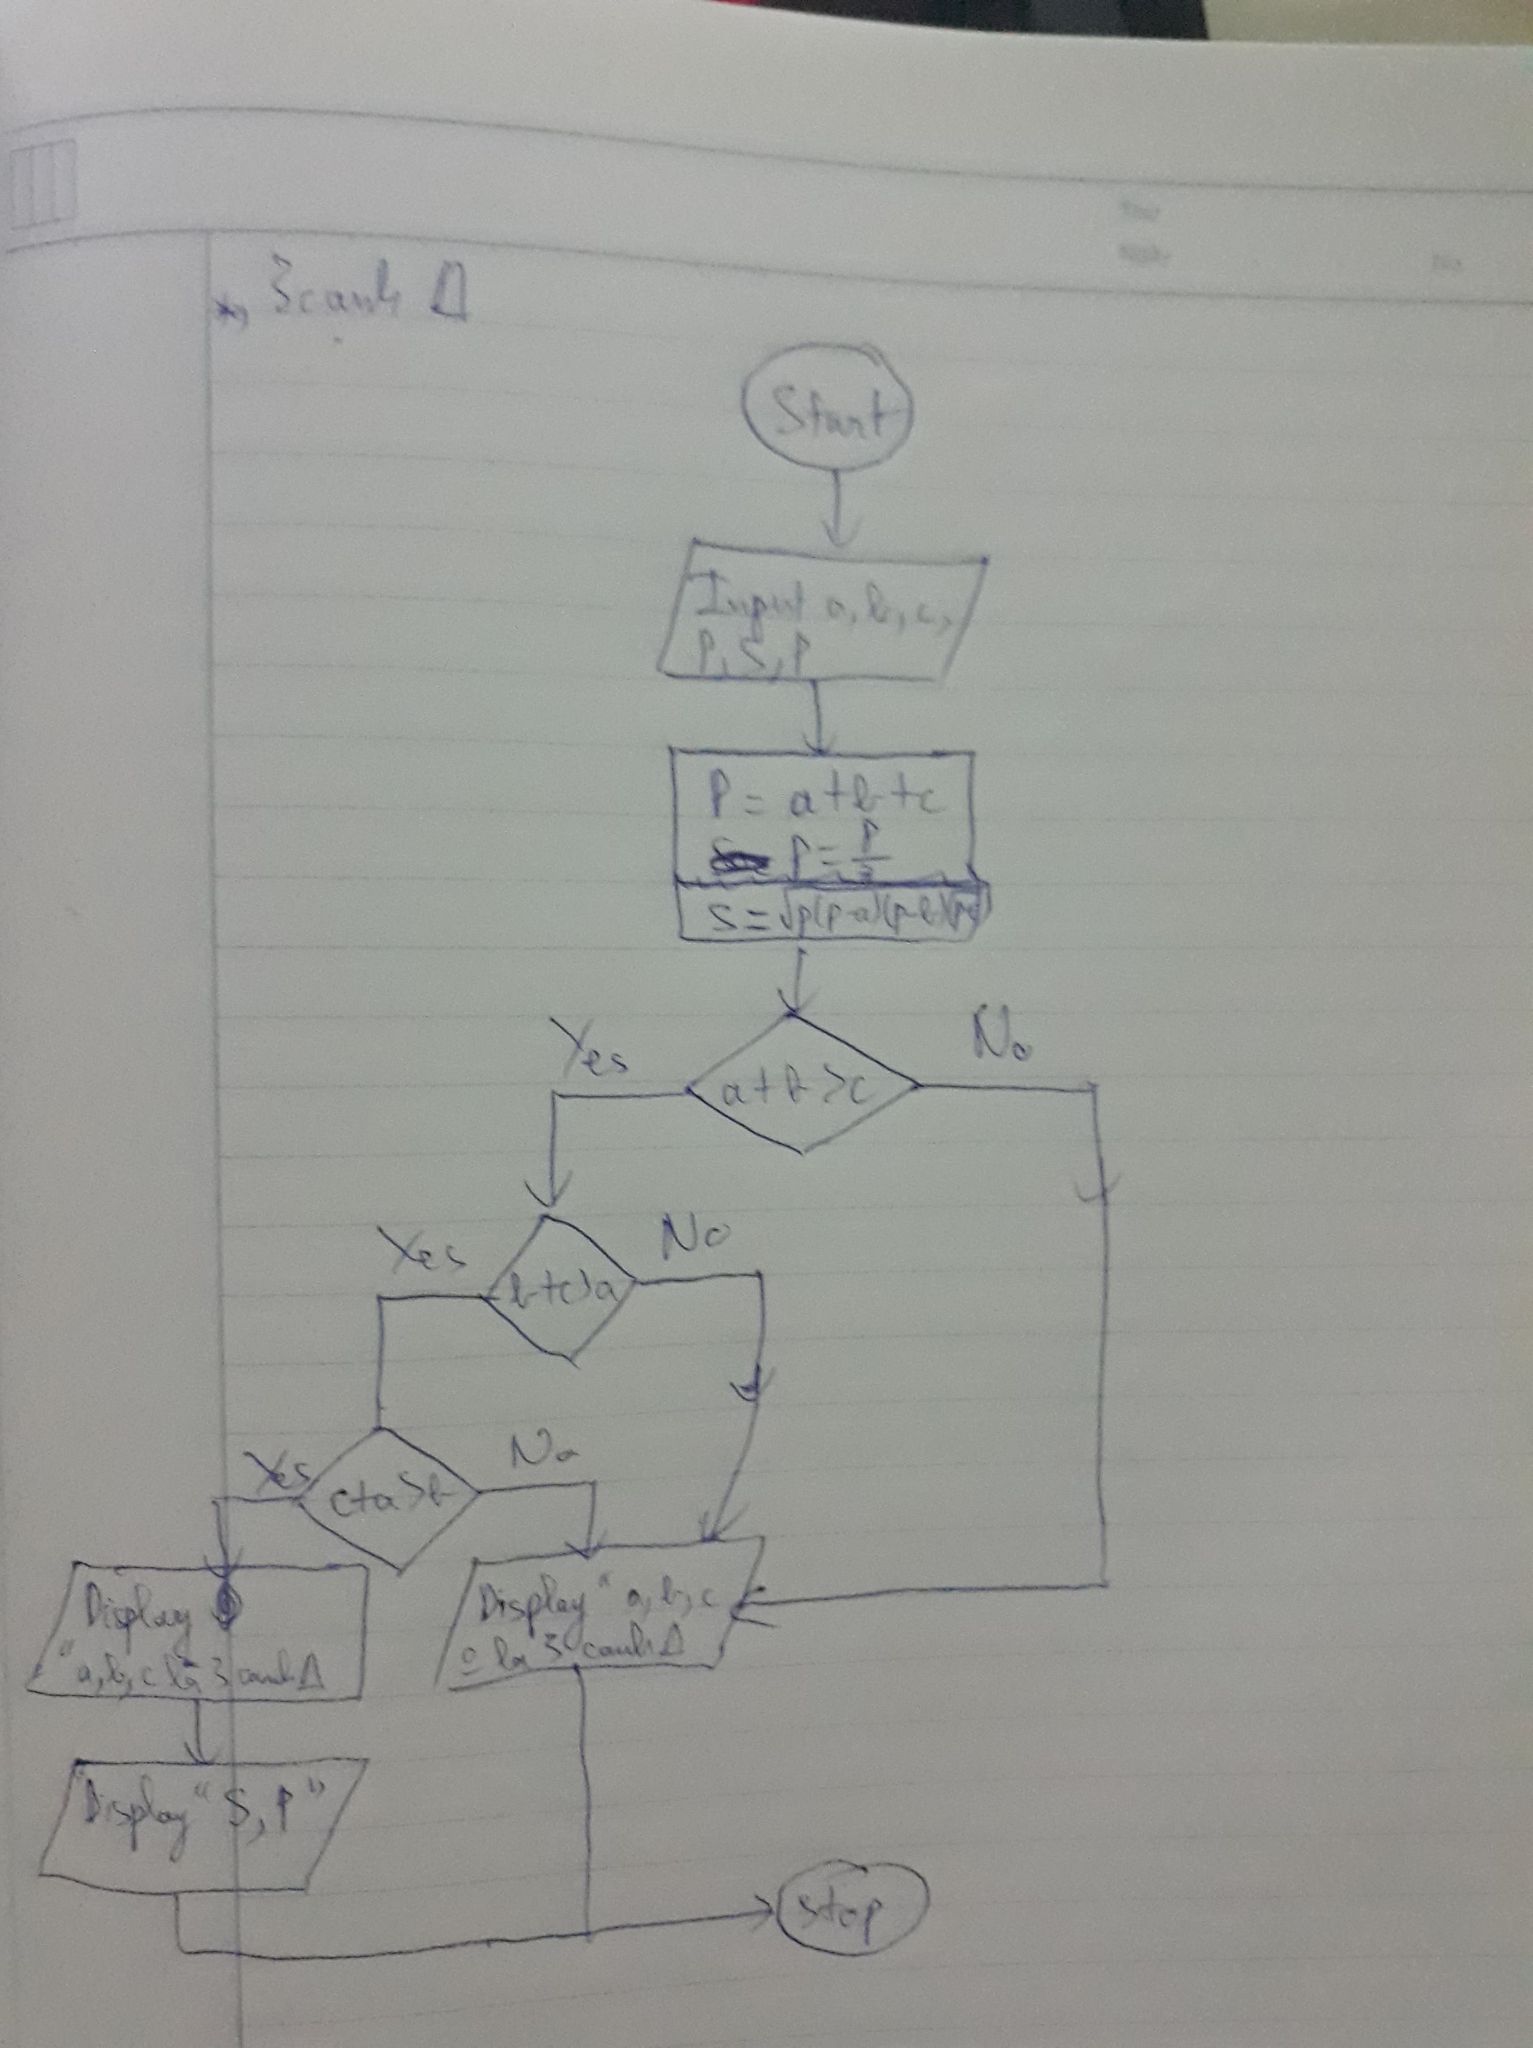 *, 3 canh Δ
Start
Input a, b, c,
P, S, p
P = a+b+c
p = P/2
S = √p(p-a)(p-b)(p-c)
Yes
No
a+b>c
Yes
No
b+c>a
Yes
No
c+a>b
Display
"a, b, c là 3 canh Δ
Display "a, b, c
o là 3 canh Δ
Display "S, P"
stop